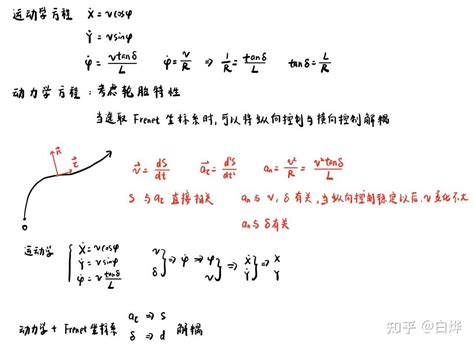 运动学方程 Ẋ = vcosφ
Ẏ = vsinφ
φ̇ = vtanδ/L φ̇ = v/R ⇒ 1/R = tanδ/L tanδ = L/R
动力学方程：考虑轮胎特性
当选取 Frenet 坐标系时，可以将纵向控制与横向控制解耦
n τ
v⃗ = ds/dt a⃗t = d²s/dt² an = v²/R = v²tanδ/L
S 与 at 直接相关 an 与 v, δ 有关，当纵向控制稳定以后，v 变化不大
an 与 δ 有关
运动学 { Ẋ = vcosφ
Ẏ = vsinφ
φ̇ = v tanδ/L
v δ } ⇒ φ̇ ⇒ φ v } ⇒ Ẋ Ẏ } ⇒ X Y
动力学 + Frenet 坐标系 at ⇒ s
δ ⇒ d 解耦
知乎 @白烨